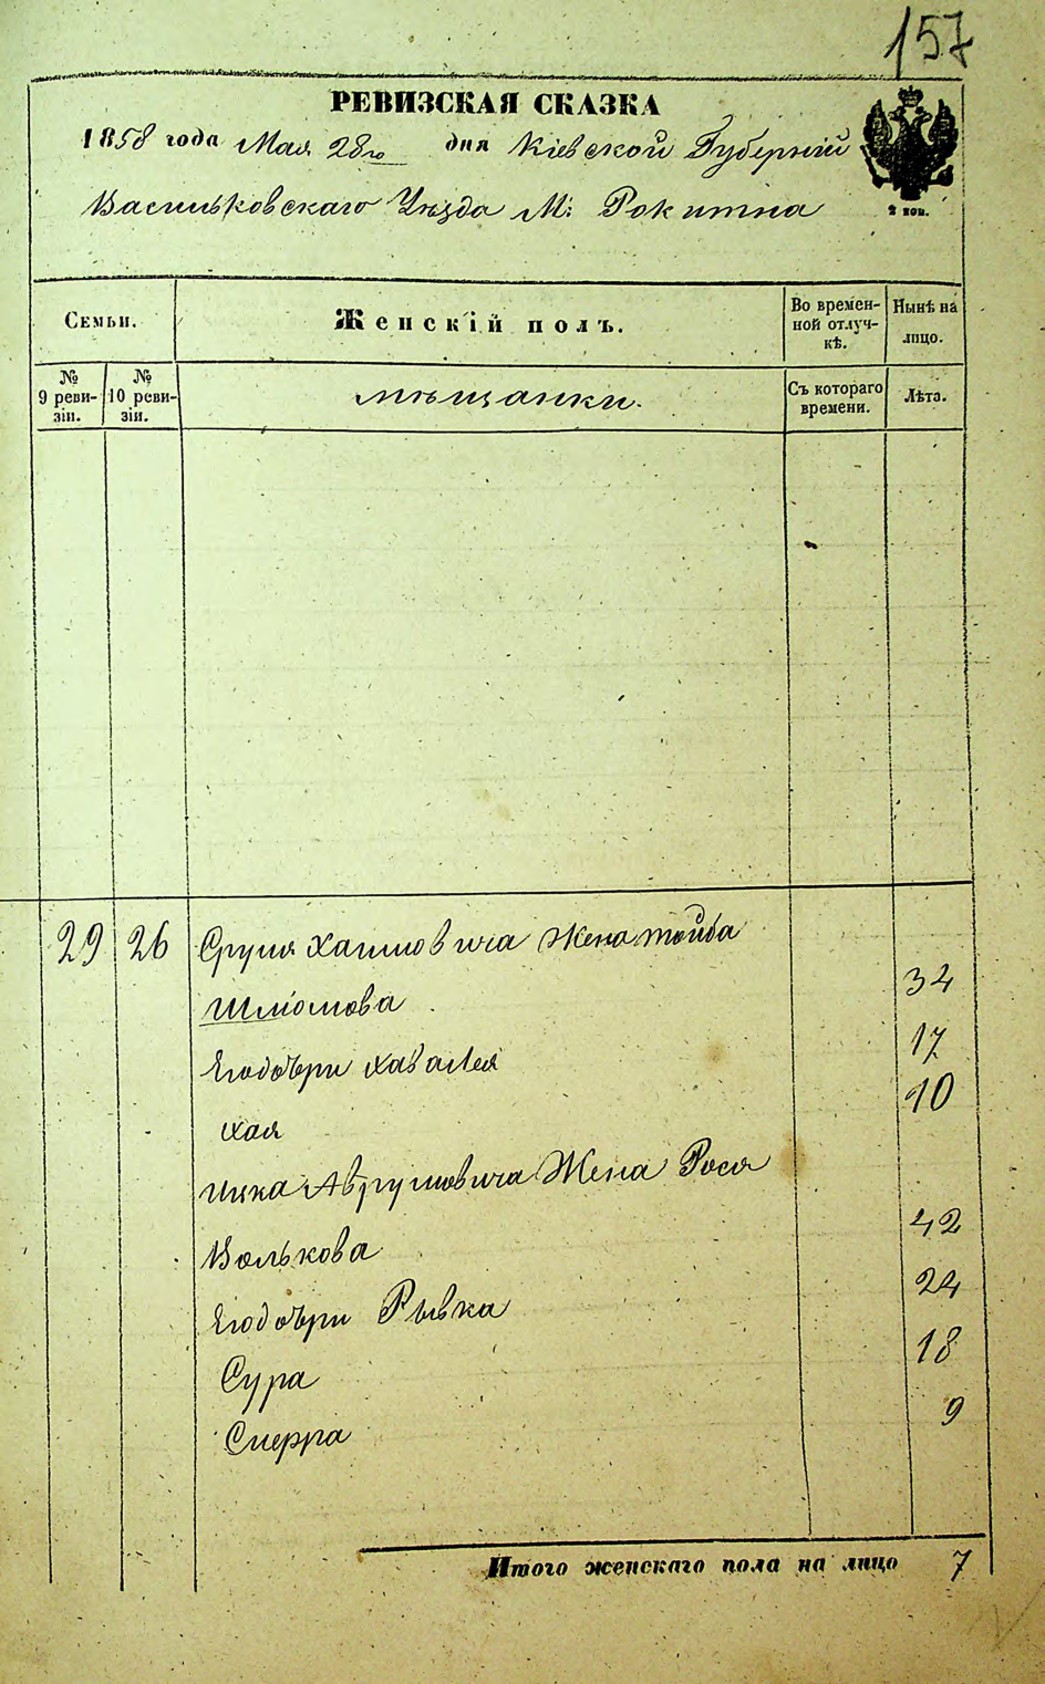 157
РЕВИЗСКАЯ СКАЗКА
1858 года Мая 28го дня Кіевской Губерніи
2 коп.
Васильковскаго Уѣзда М: Рокитна
Семьи.
Женскій полъ.
Во времен-
ной отлуч-
кѣ.
Нынѣ на
лицо.
№
9 реви-
зіи.
№
10 реви-
зіи.
мѣщанки.
Съ котораго
времени.
Лѣта.
29 26 Сруля Хаимовича Жена тойба
Шліомова 34
Егодочѣри хава Лея 17
хая 10
Ицка Аврумовича Жена Рося
Волькова 42
Егодочѣри Рывка 24
Сура 18
9
Итого женскаго пола на лицо 7